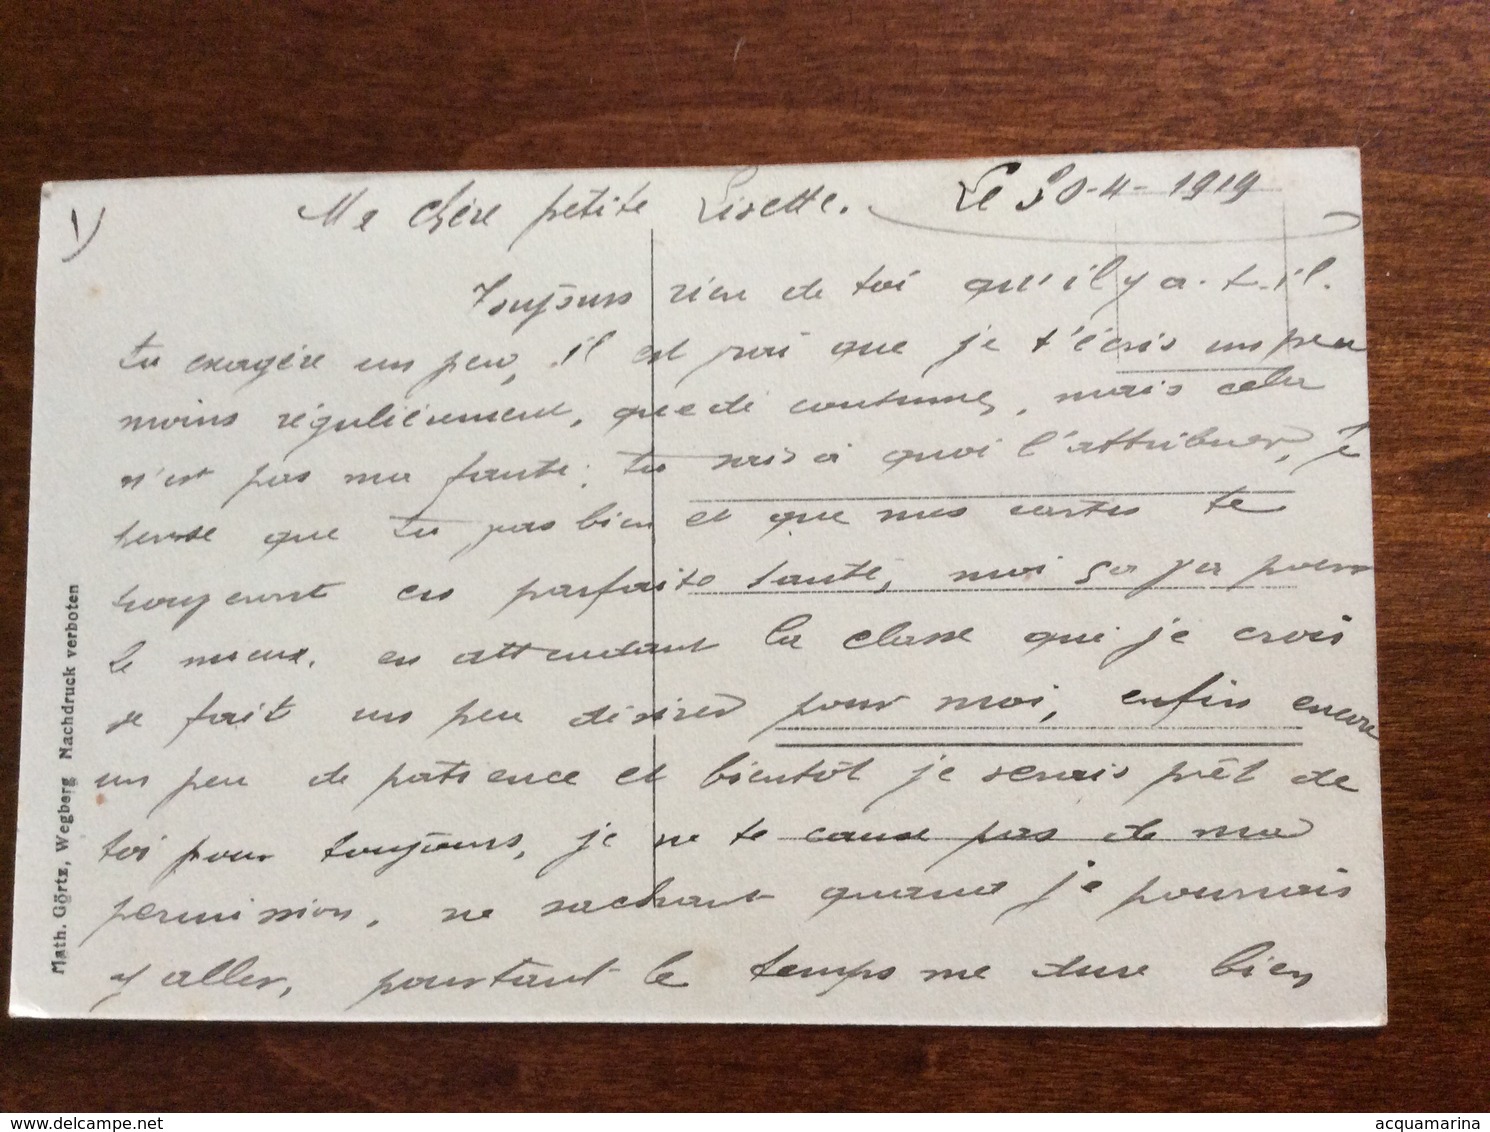 1)
Le 30-4-1919
Ma chère petite Lisette.
Toujours rien de toi qu'il y a-t-il.
tu exagère un peu, il est vrai que je t'écris un peu
moins régulièrement, que de coutume, mais cela
n'est pas ma faute; tu sais à quoi l'attribuer, je
pense que tu vas bien et que mes cartes te
trouveront en parfaite santé, moi ça va pour
le mieux, en attendant la classe qui je crois
se fait un peu désirer pour moi, enfin encore
un peu de patience et bientôt je serais prêt de
toi pour toujours, je ne te cause pas de ma
permission, ne sachant quand je pourrais
y aller, pourtant le temps me dure bien
Math. Görtz, Wegberg Nachdruck verboten
www.delcampe.net
acquamarina